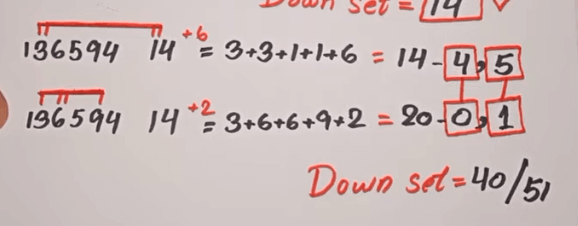 Down set = 14
136594 14 +6 = 3+3+1+1+6 = 14-4,5
136594 14 +2 = 3+6+6+9+2 = 20-0,1
Down set = 40/51